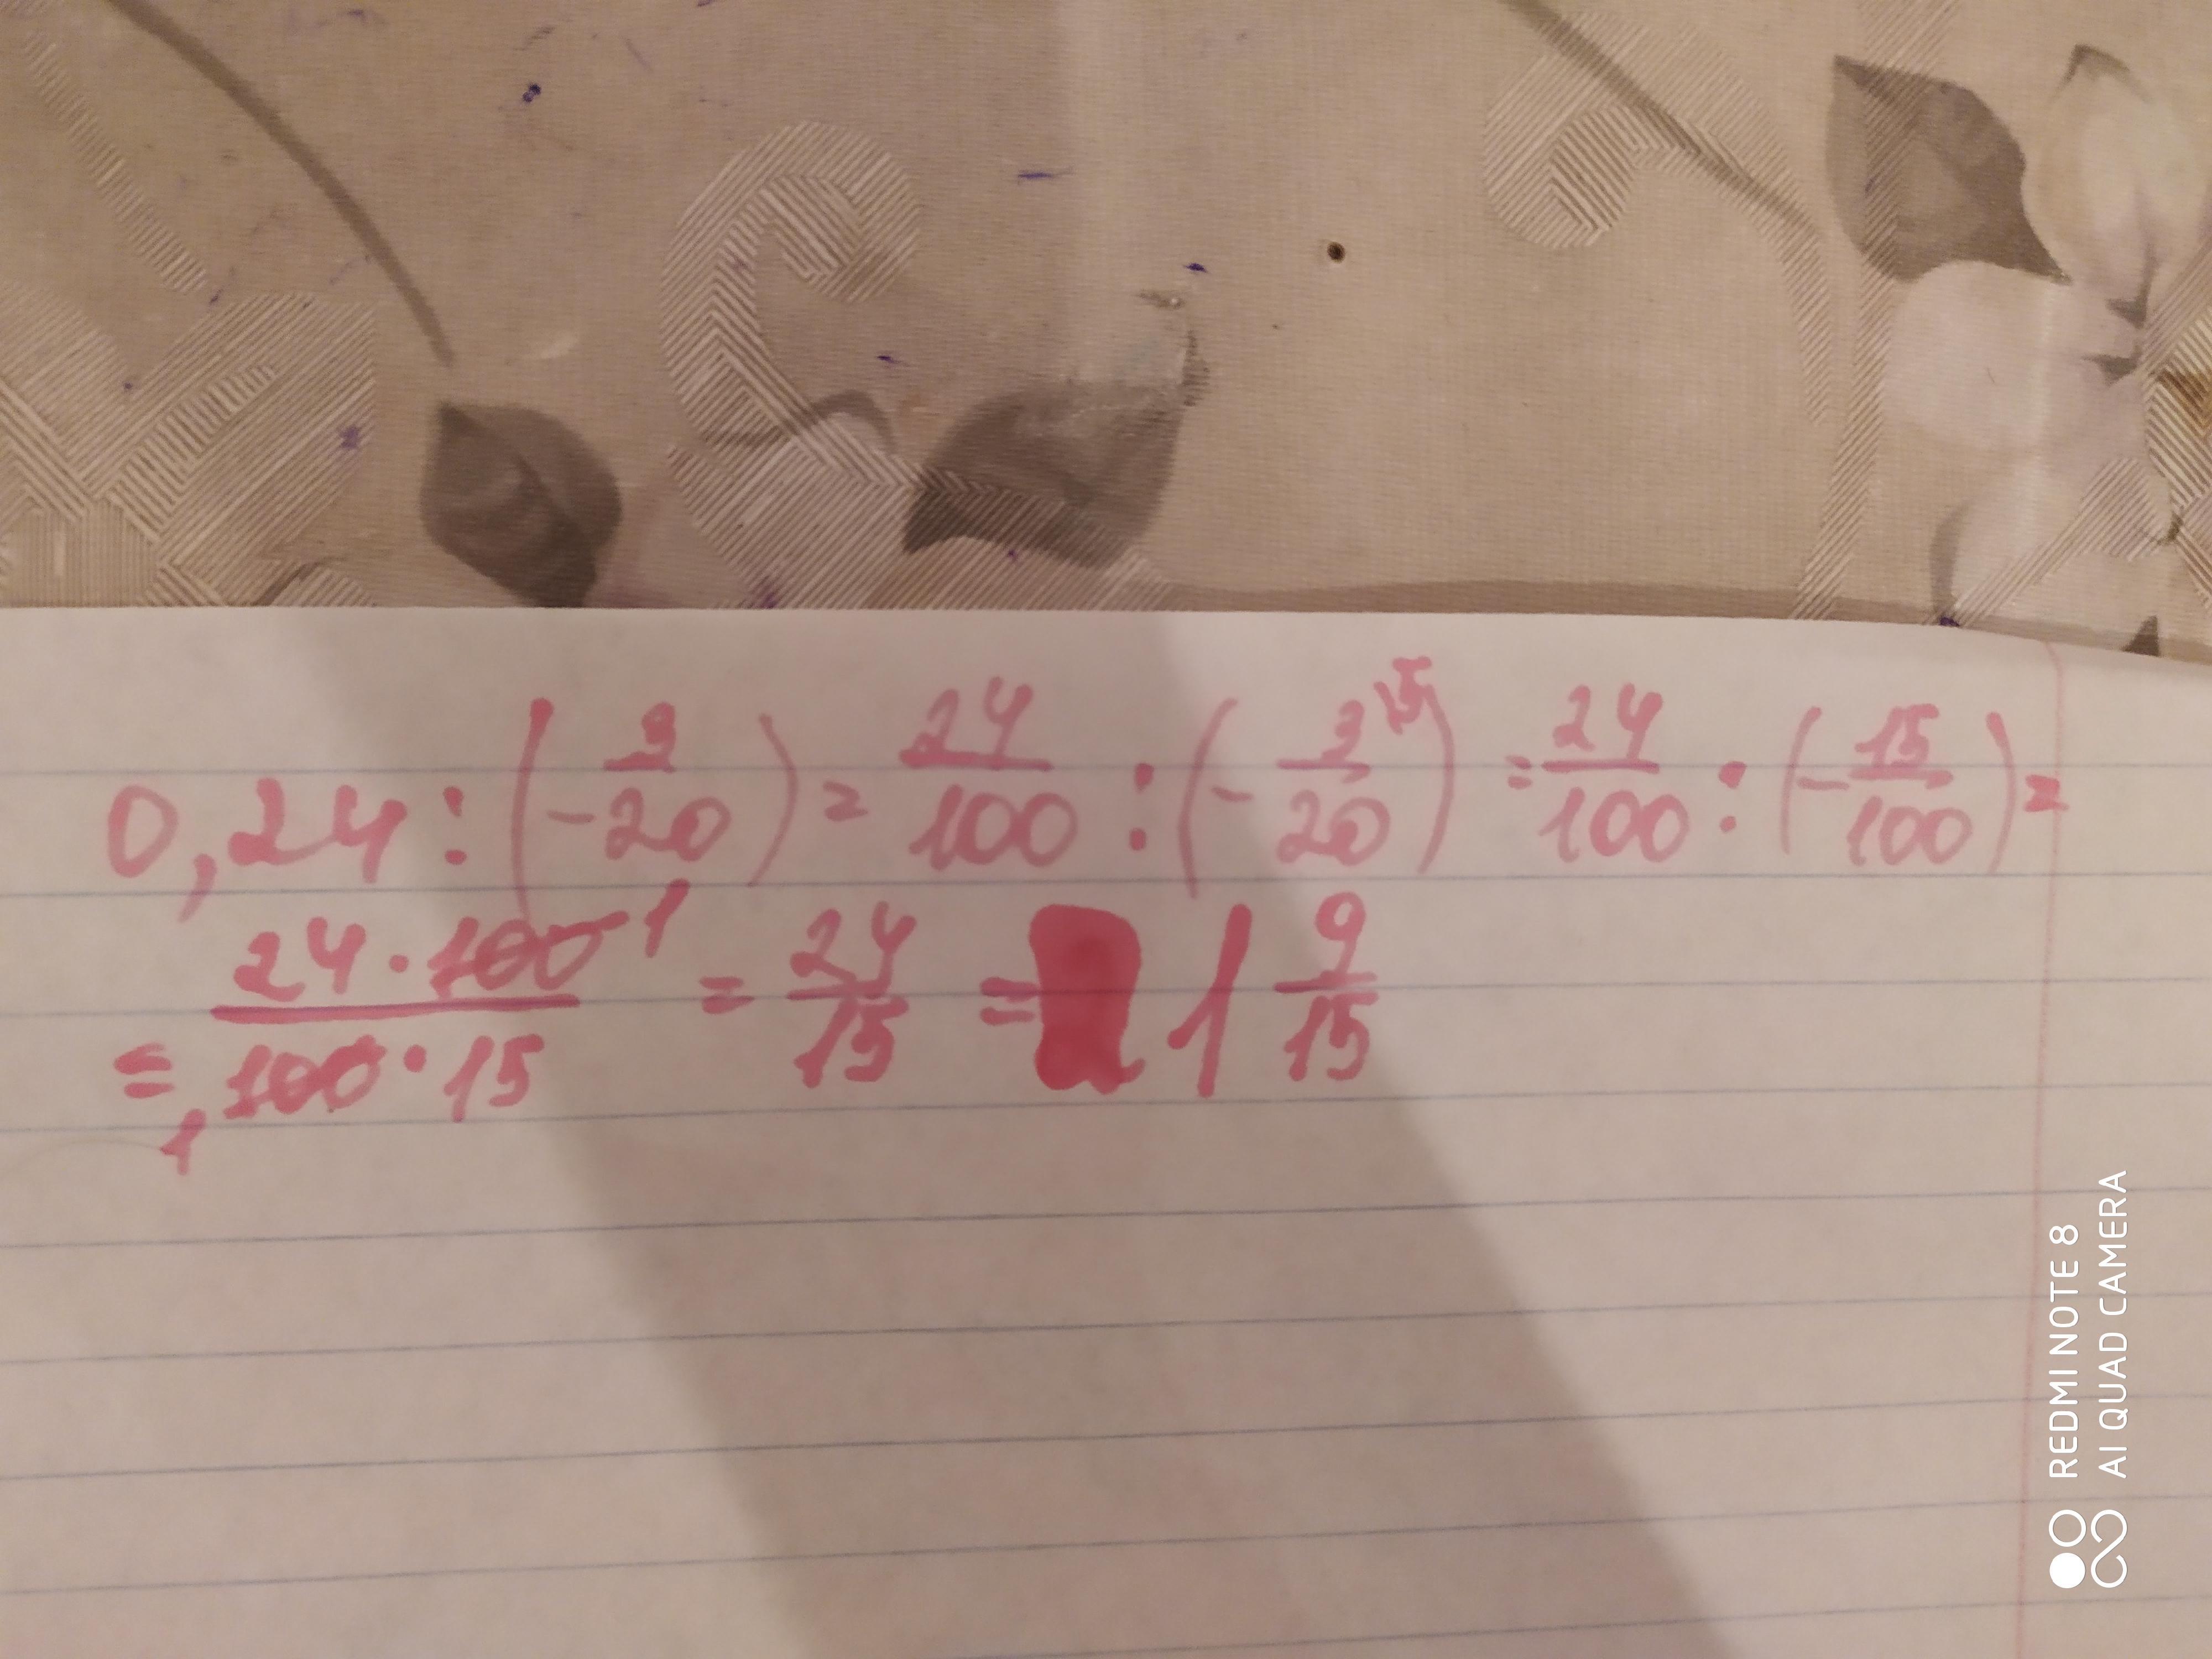 0,24 : (3/-20) = 24/100 : (-3/20 15) = 24/100 : (-15/100) =
= 24·100 1/1 100·15 = 24/15 = 1 9/15
REDMI NOTE 8
AI QUAD CAMERA